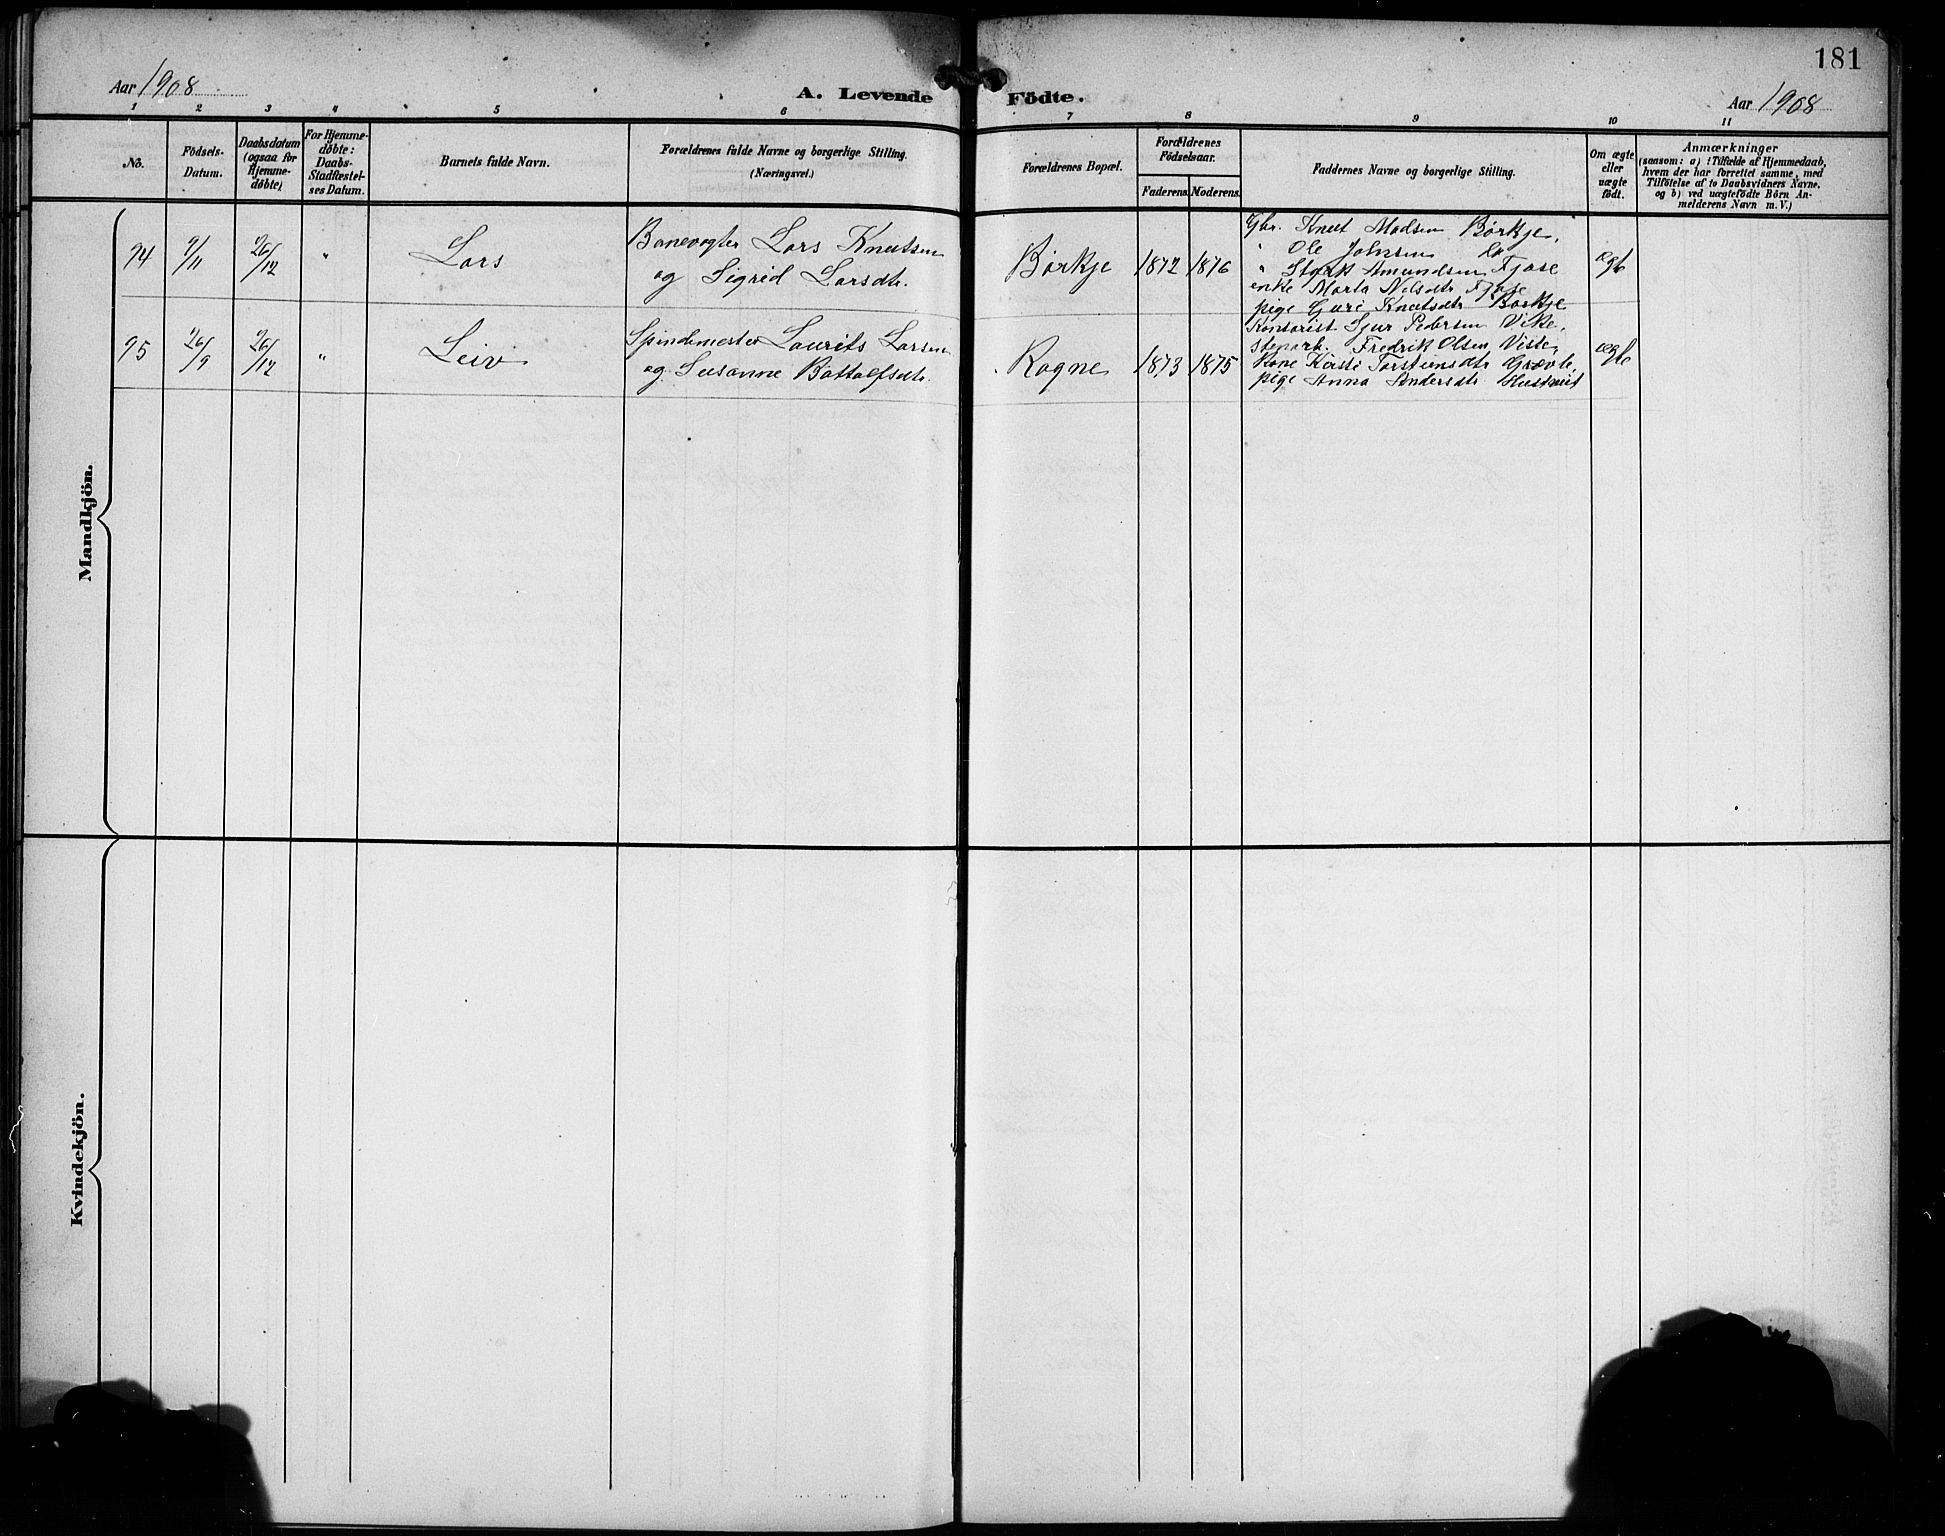 181
Aar 1908
A. Levende Födte.
Aar 1908
1 2 3 4 5 6 7 8 9 10 11
No.
Födsels-
Datum.
Daabsdatum
(ogsaa for
Hjemme-
döbte)
For Hjemme-
döbte:
Daabs-
Stadfæstel-
ses Datum.
Barnets fulde Navn.
Forældrenes fulde Navne og borgerlige Stilling.
(Næringsvei.)
Forældrenes Bopæl.
Forældrenes
Födselsaar.
Faderens. Moderens.
Faddernes Navne og borgerlige Stilling.
Om ægte
eller
uægte
födt.
Anmærkninger
(saasom: a) i Tilfælde af Hjemmedaab,
hvem der har forrettet samme, med
Tilföielse af to Daabsvidners Navne.
og b) ved uægtefödte Börn An-
melderens Navn m. V.)
Mandkjön.
94 9/11 26/12 " Lars
Banevogter Lars Knutsen
og Sigrid Larsdtr.
Børkje 1872 1876
Gbr. Knut Madsen Børkje,
" Ole Johnsen
" Amundsen Fjose
enke Marta Nilsdtr Fjose
pige Guri Knutsdtr Børkje
ægte
95 26/9 26/12 " Leiv
Spindemester Laurits Larsen
og Susanne Bottolfsdtr.
Rogne 1873 1875
Kontorist Sjur Pedersen Vike,
Fredrik Olsen Viste,
Kone Kirsti Torsteinsdtr Grovle,
pige Anna Andersdtr.
ægte
Kvindekjön.